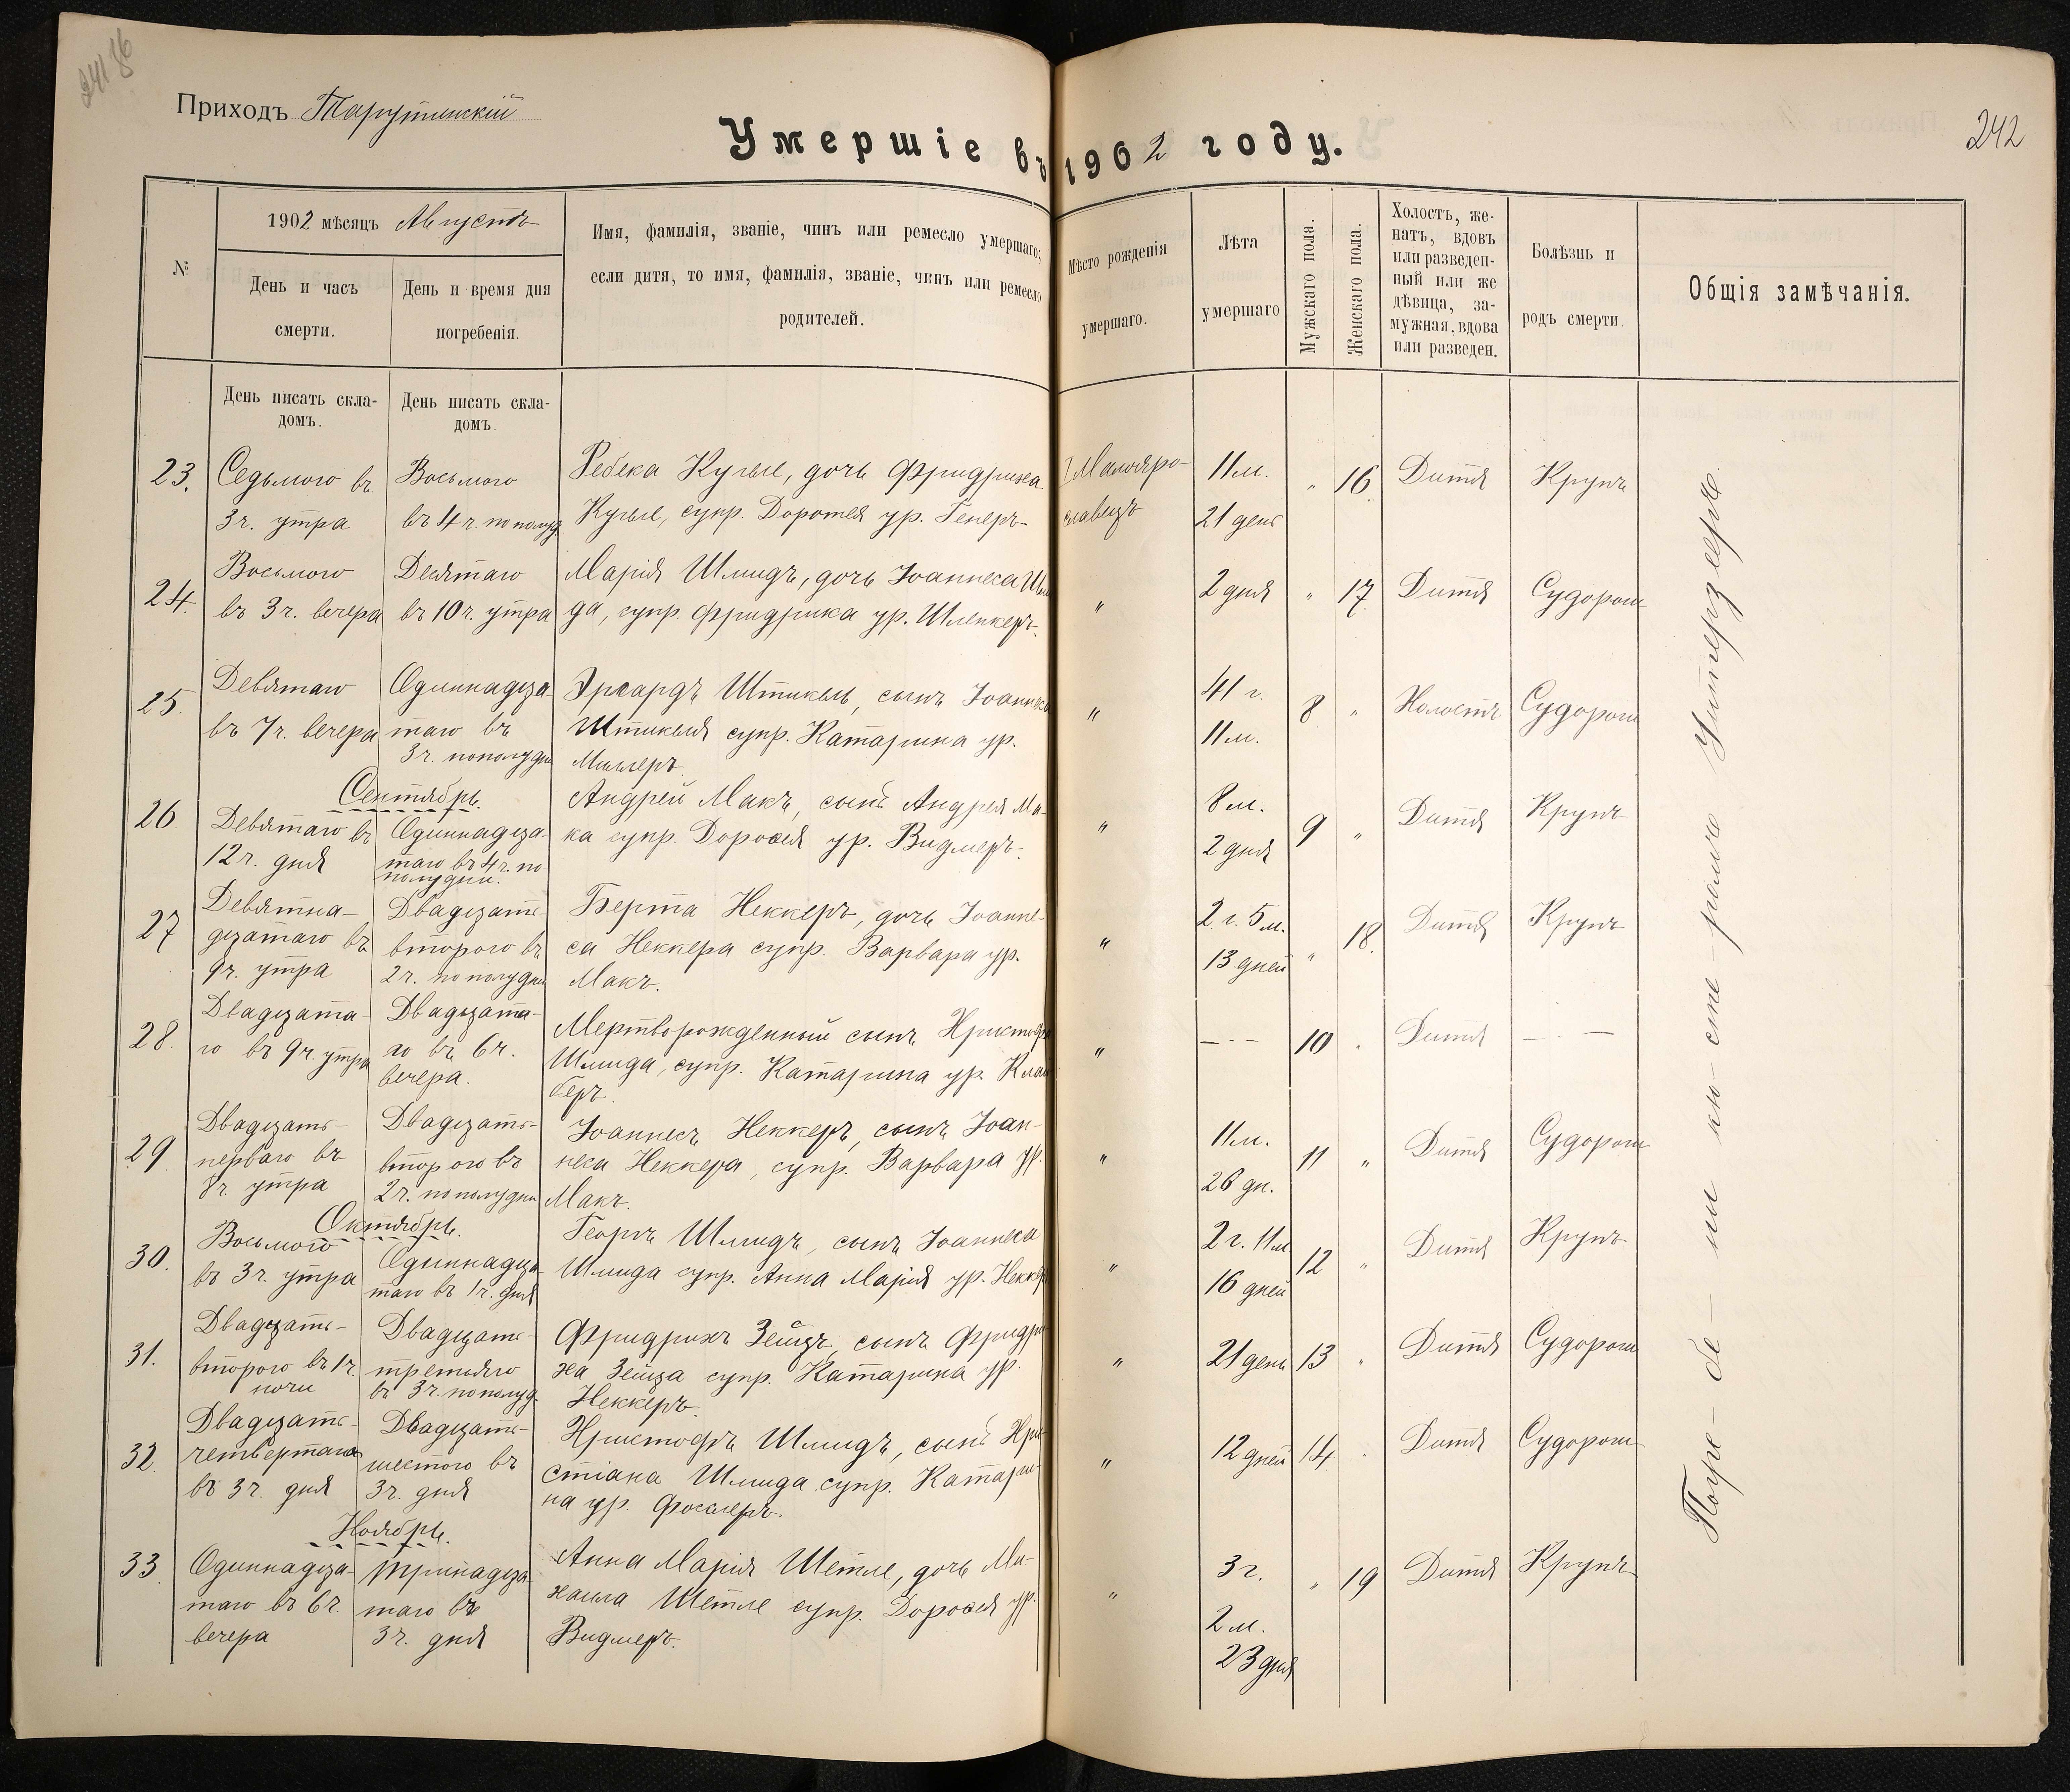 241 об
Приходъ Тарутинскій
Умершіе въ 1902 году.
242
№
1902 мѣсяцъ Августъ
День и часъ
смерти.
День и время дня
погребенія.
Имя, фамилія, званіе, чинъ или ремесло умершаго;
если дитя, то имя, фамилія, званіе, чинъ или ремесло
родителей.
Мѣсто рожденія
умершаго.
Лѣта
умершаго
Мужскаго пола.
Женскаго пола.
Холостъ, же-
натъ, вдовъ
или разведен-
ный или же
дѣвица, за-
мужная, вдова
или разведен.
Болѣзнь и
родъ смерти.
Общія замѣчанія.
День писать скла-
домъ.
День писать скла-
домъ.
23.
Седьмого въ
3 ч. утра
Восьмого
въ 4 ч. пополуд
Ребека Кугеле, дочь Фридриха
Кугеле, супр. Доротея ур. Генеръ
I Малояро-
славецъ
11 м.
21 день
" 16.
Дитя
Крупъ
24.
Восьмого
въ 3 ч. вечера
Десятаго
въ 10 ч. утра
Марія Шмидъ, дочь Іоаннеса Шми
да, супр. Фридрика ур. Шленкеръ.
"
2 дня
" 17.
Дитя
Судороги
25.
Девятаго
въ 7 ч. вечера
Одиннадца
таго въ
3 ч. пополудни
Эргардъ Штикель, сынъ Іоаннеса
Штикеля супр. Катарина ур.
Миллеръ.
"
41 г.
11 м.
8 "
Холостъ
Судороги
Сентябрь.
26
Девятаго въ
12 ч. дня
Одиннадца-
таго въ 4 ч. по
полудни.
Андрей Макъ, сынъ Андрея Ма-
ка супр. Доровея ур. Видмеръ.
"
8 м.
2 дня
9 "
Дитя
Крупъ
27
Девятна-
дцатаго въ
9 ч. утра
Двадцать
второго въ
2 ч. пополудни
Берта Неккеръ, дочь Іоанне-
са Неккера супр. Варвара ур.
Макъ.
"
2 г. 5 м.
13 дней
" 18.
Дитя
Крупъ
28.
Двадцата-
го въ 9 ч. утра
Двадцата-
го въ 6 ч.
вечера.
Мертворожденный сынъ Христофа
Шмида, супр. Катарина ур. Клай
беръ.
"
— · —
10 "
Дитя
— · —
29
Двадцать-
перваго въ
8 ч. утра
Двадцать-
второго въ
2 ч. пополудни
Іоаннесъ Неккеръ, сынъ Іоан-
неса Неккера, супр. Варвара ур.
Макъ.
"
11 м.
26 дн.
11 "
Дитя
Судороги
Октябрь.
30.
Восьмого
въ 3 ч. утра
Одиннадца
таго въ 1 ч. дня
Георгъ Шмидъ, сынъ Іоаннеса
Шмида супр. Анна Марія ур. Неккеръ
"
2 г. 11 м
16 дней
12 "
Дитя
Крупъ
31.
Двадцать-
второго въ 1 ч.
ночи
Двадцать-
третьяго
въ 3 ч. пополуд.
Фридрихъ Зейцъ, сынъ Фридри
ха Зейца супр. Катарина ур.
Неккеръ.
"
21 день
13 "
Дитя
Судороги
32.
Двадцать-
четвертаго
въ 3 ч. дня
Двадцать-
шестого въ
3 ч. дня
Христофъ Шмидъ, сынъ Хри
стіана Шмида супр. Катари-
на ур. Фосслеръ.
"
12 дней
14 "
Дитя
Судороги
Ноябрь.
33.
Одиннадца-
таго въ 6 ч.
вечера
Тринадца
таго въ
3 ч. дня
Анна Марія Шетле, дочь Ми-
хаила Шетле супр. Доровея ур.
Видмеръ.
"
3 г.
2 м.
23 дня
" 19
Дитя
Крупъ